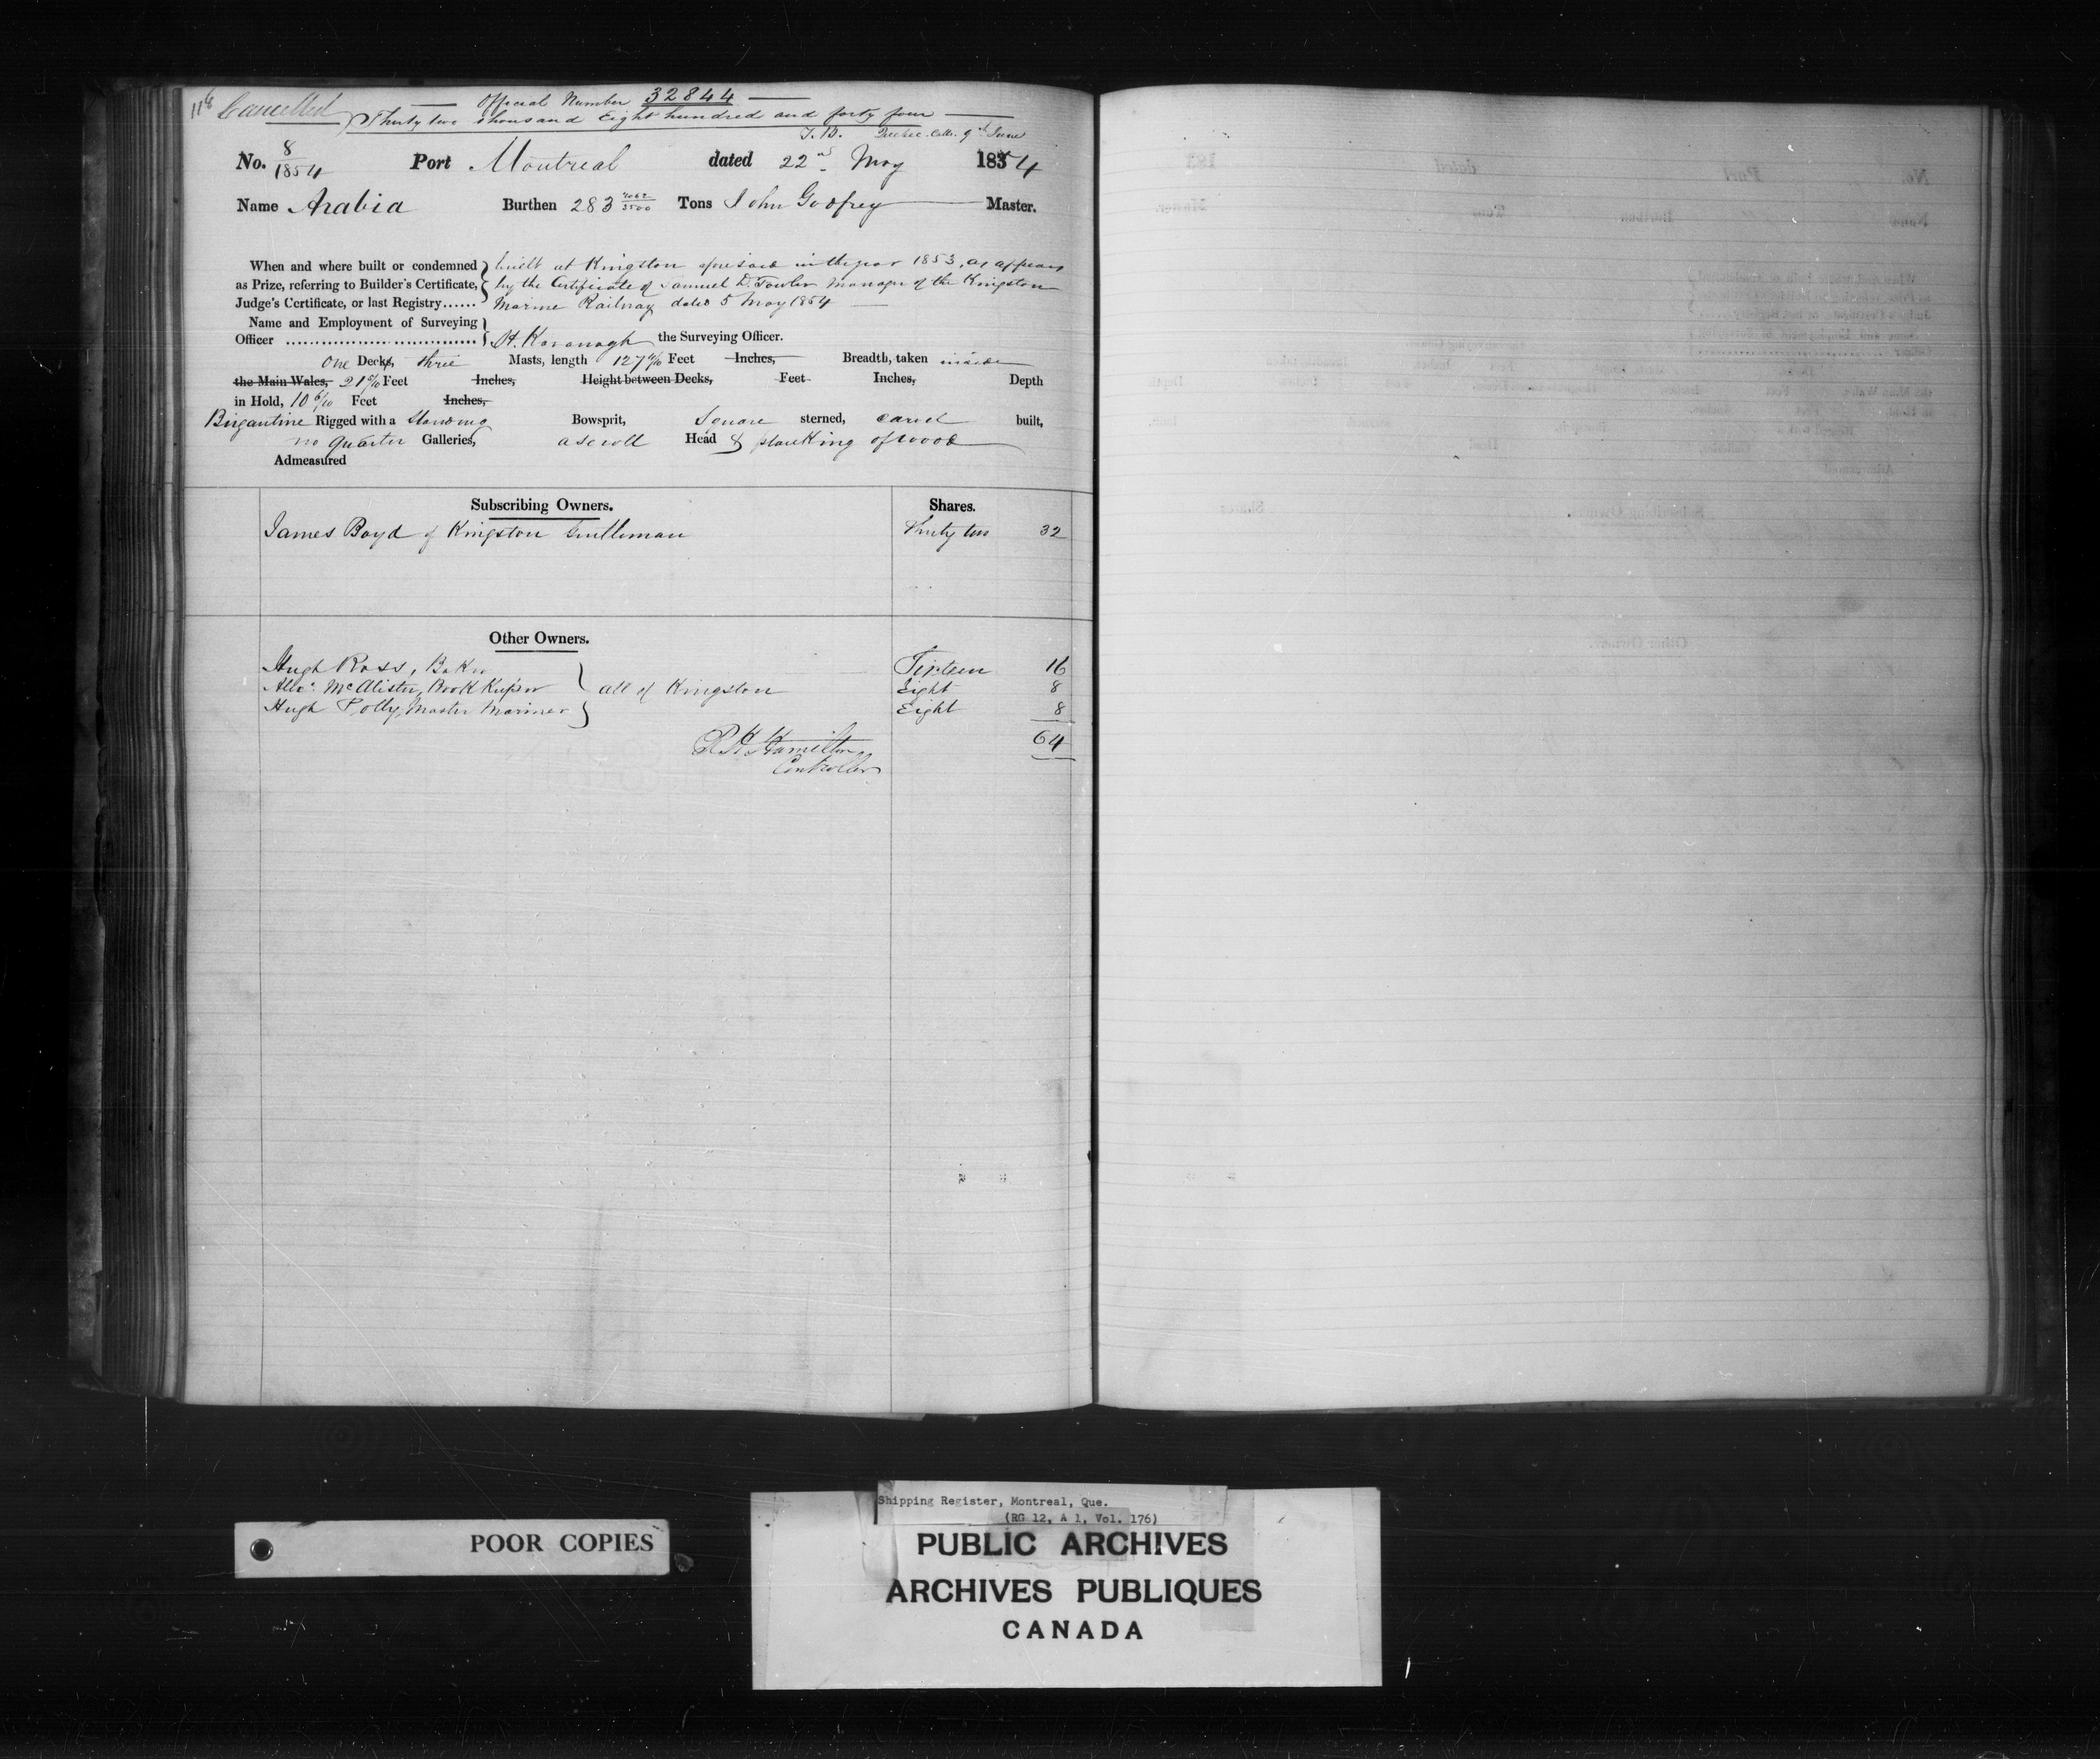 116 Cancelled Official Number 32844
Thirty two thousand Eight hundred and forty four
T.B. Quebec. Coll. 9th June
No. 8/1854 Port Montreal dated 22nd May 1854
Name Arabia Burthen 283 Tons John Godfrey Master.
When and where built or condemned built at Kingston aforesaid in the year 1853, as appears
as Prize, referring to Builder's Certificate, by the Certificate of Samuel D. Fowler Manager of the Kingston
Judge's Certificate, or last Registry...... Marine Railway dated 5 May 1854
Name and Employment of Surveying
Officer ................................ H. Kavanagh the Surveying Officer.
One Decks, three Masts, length 127 4/10 Feet Inches, Breadth, taken inside
the Main Wales, 21 5/10 Feet Inches, Height between Decks, Feet Inches, Depth
in Hold, 10 6/10 Feet Inches,
Brigantine Rigged with a standing Bowsprit, Square sterned, carvel built,
no quarter Galleries, a scroll Head & planking of wood
Admeasured
Subscribing Owners. Shares.
James Boyd of Kingston Gentleman Thirty two 32
Other Owners.
Hugh Ross, Baker Sixteen 16
Alexr. McAlister, Book Keeper all of Kingston Eight 8
Hugh Polly, Master Mariner Eight 8
64
Hamilton
Controller
POOR COPIES
Shipping Register, Montreal, Que.
(RG 12, A 1, Vol. 176)
PUBLIC ARCHIVES
ARCHIVES PUBLIQUES
CANADA